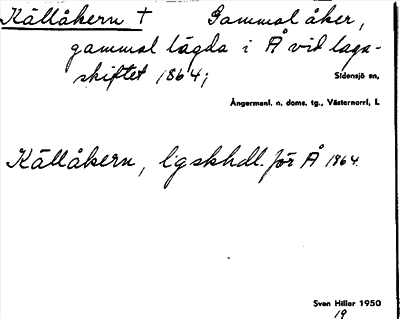 Källåkern † Gammal åker,
gammal lägda i Å vid laga-
skiftet 1864;
Sidensjö sn,
Ångermanl. n. doms. tg., Västernorrl. l.
Källåkern, lgskhdl. för Å 1864.
Sven Hiller 1950
19